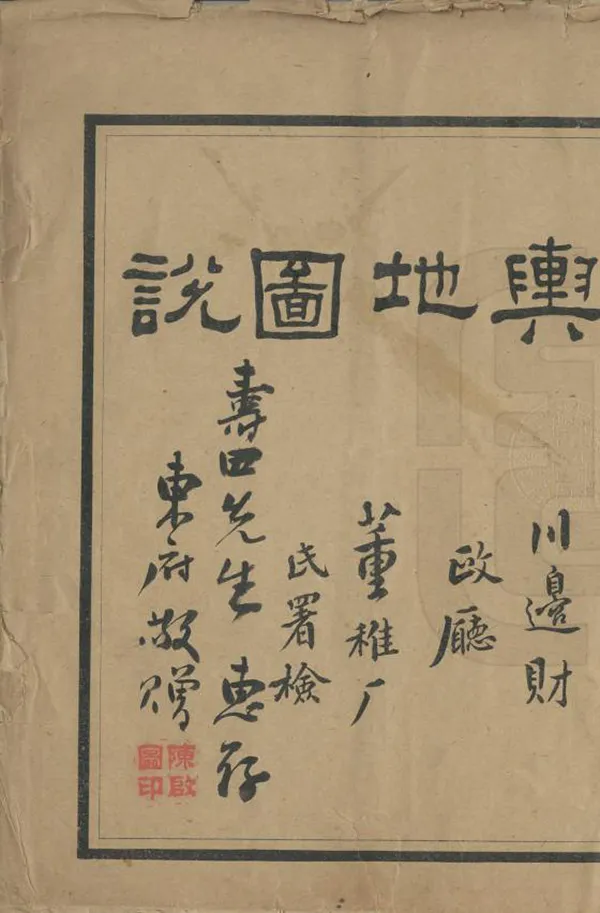 輿地圖說
川邊財
政廳
董稚厂
氏署檢
壽田先生惠存
東府敬贈
陳啟
圖印